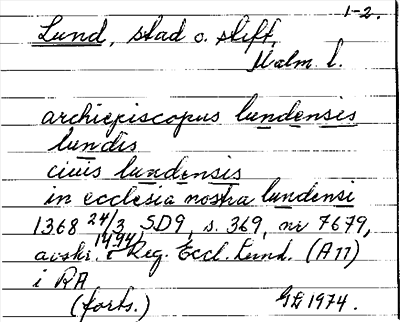 1-2.
Lund, stad o. stift,
Malm. l.
archiepiscopus lundensis
lundis
ciuis lundensis
in ecclesia nostra lundensi
1368 24/3, SD9, s. 369, nr 7679,
avskr. 1494/ i Reg. Eccl. Lund. (A 11)
i RA
(forts.) GE 1974.